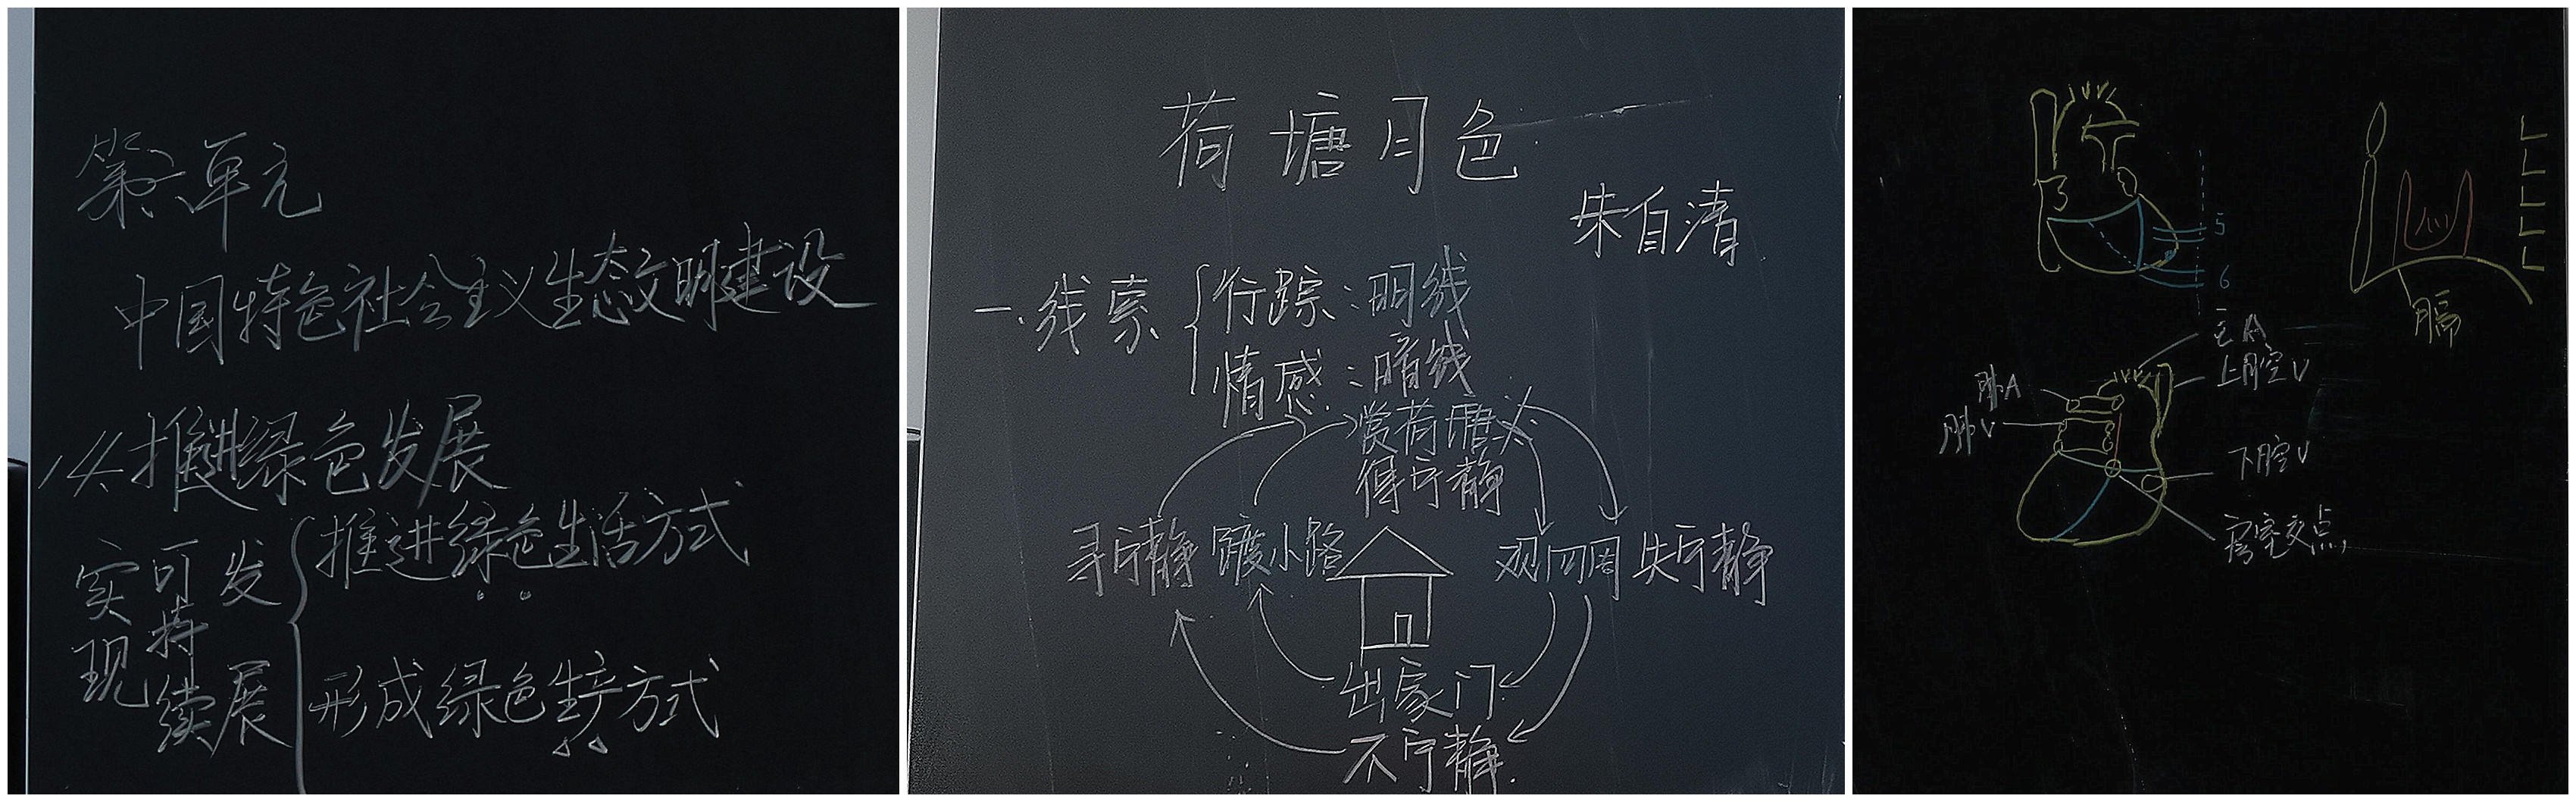 第六单元
中国特色社会主义生态文明建设
14.推进绿色发展
实现可持续发展
推进绿色生活方式
形成绿色生产方式
荷塘月色
朱自清
一、线索
行踪:明线
情感:暗线
赏荷塘
得宁静
寻宁静 踱小路
观四周 失宁静
出家门
不宁静
5
6
膈
主A
上腔V
肺A
肺V
下腔V
房室交点